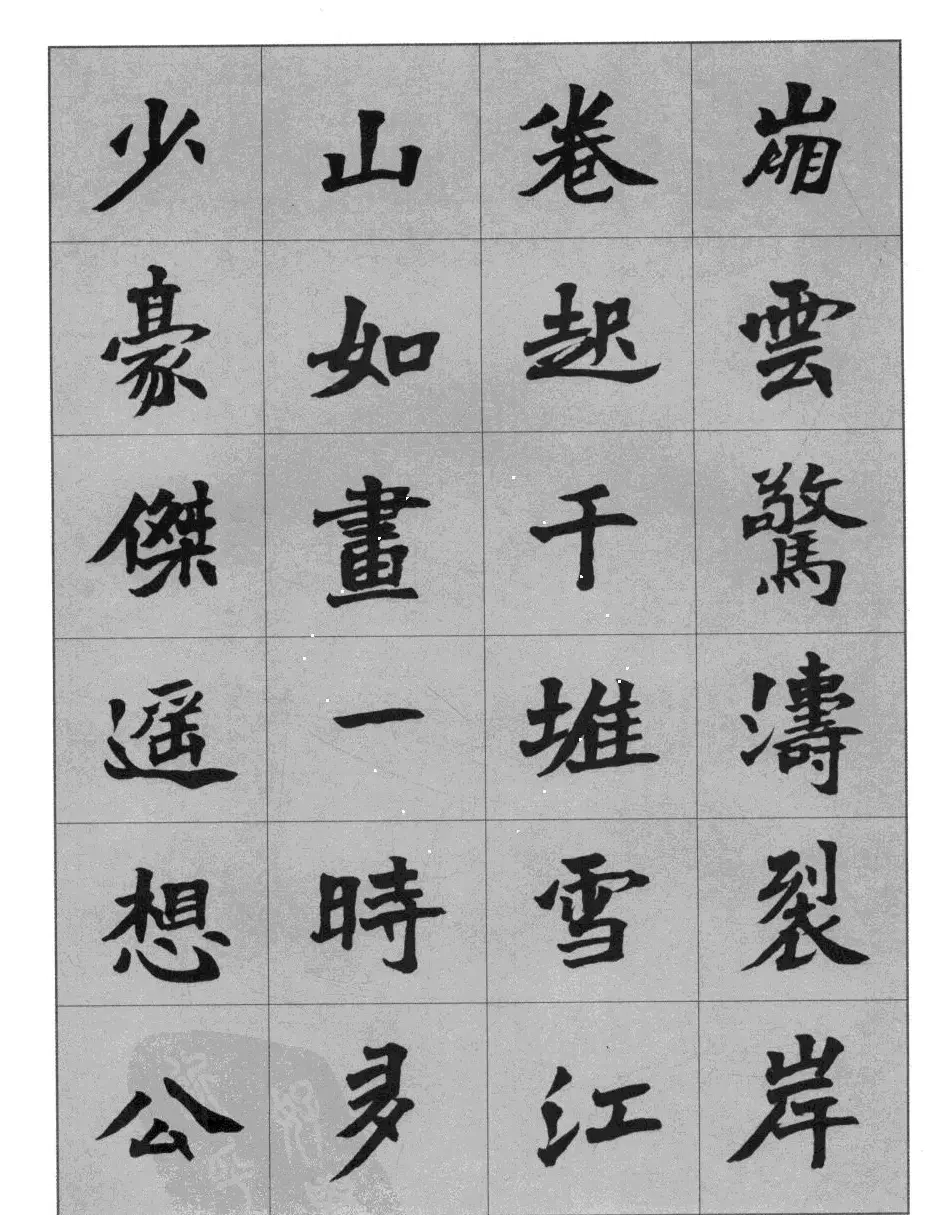 崩雲驚濤裂岸
卷起千堆雪江
山如畫一時多
少豪傑遥想公